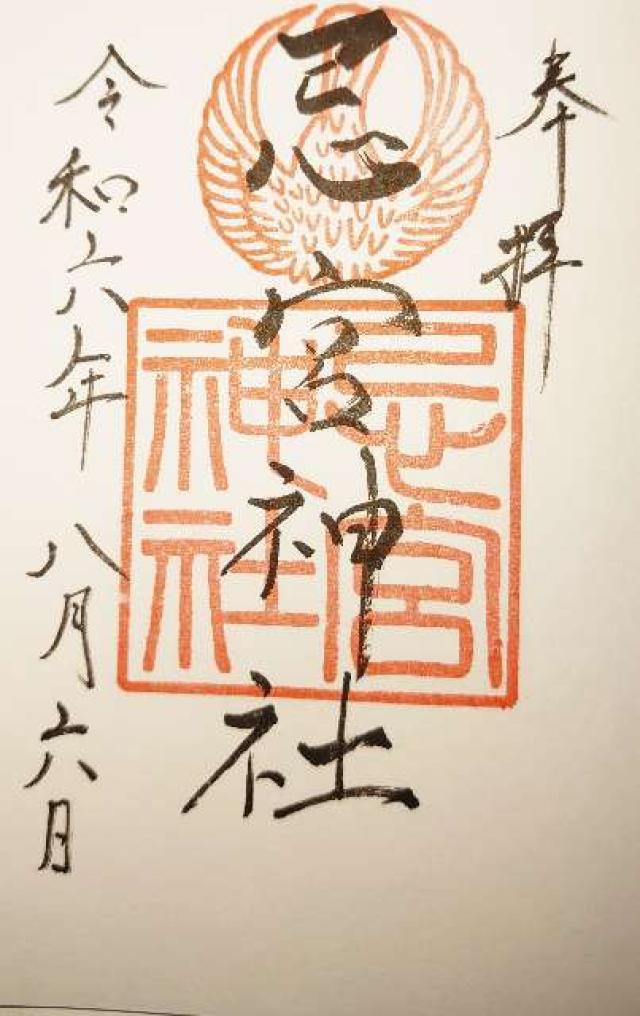 奉拝
忌宮神社
令和六年八月六日
忌宮神社